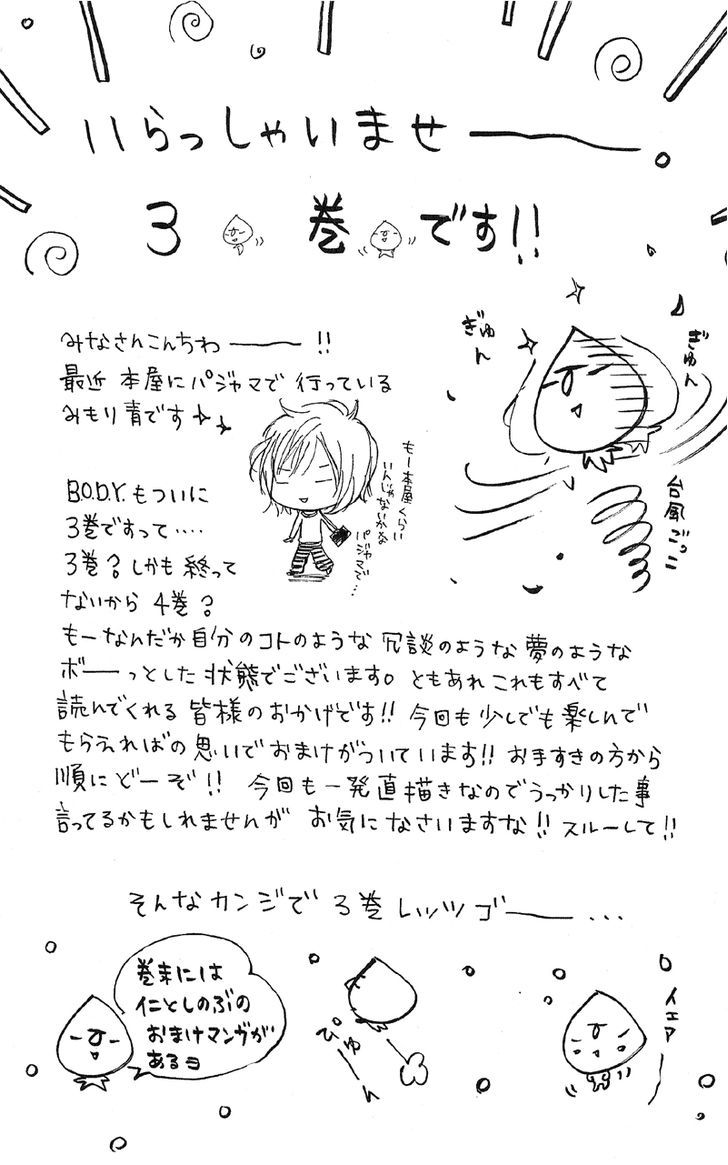 いらっしゃいませー。
3巻です!!
みなさんこんちわー!!
最近 本屋にパジャマで 行っている
みもり青です
もー本屋くらい
いんじゃないかな
パジャマで…
ぎゅん
ぎゅん
台風ごっこ
B.O.D.Y.もついに
3巻ですって‥‥
3巻?しかも終って
ないから 4巻?
もーなんだか自分のコトのような 冗談のような夢のような
ボーっとした状態でございます。ともあれこれもすべて
読んでくれる皆様のおかげです!!今回も少しでも楽しんで
もらえればの思いでおまけがついています!!お手すきの方から
順にどーぞ!! 今回も一発直描きなのでうっかりした事
言ってるかもしれませんが お気になさいますな!!スルーして!!
そんなカンジで 3巻レッツゴー…
巻末には
仁としのぶの
おまけマンガが
あるヨ
ぴゅーん
イエアー